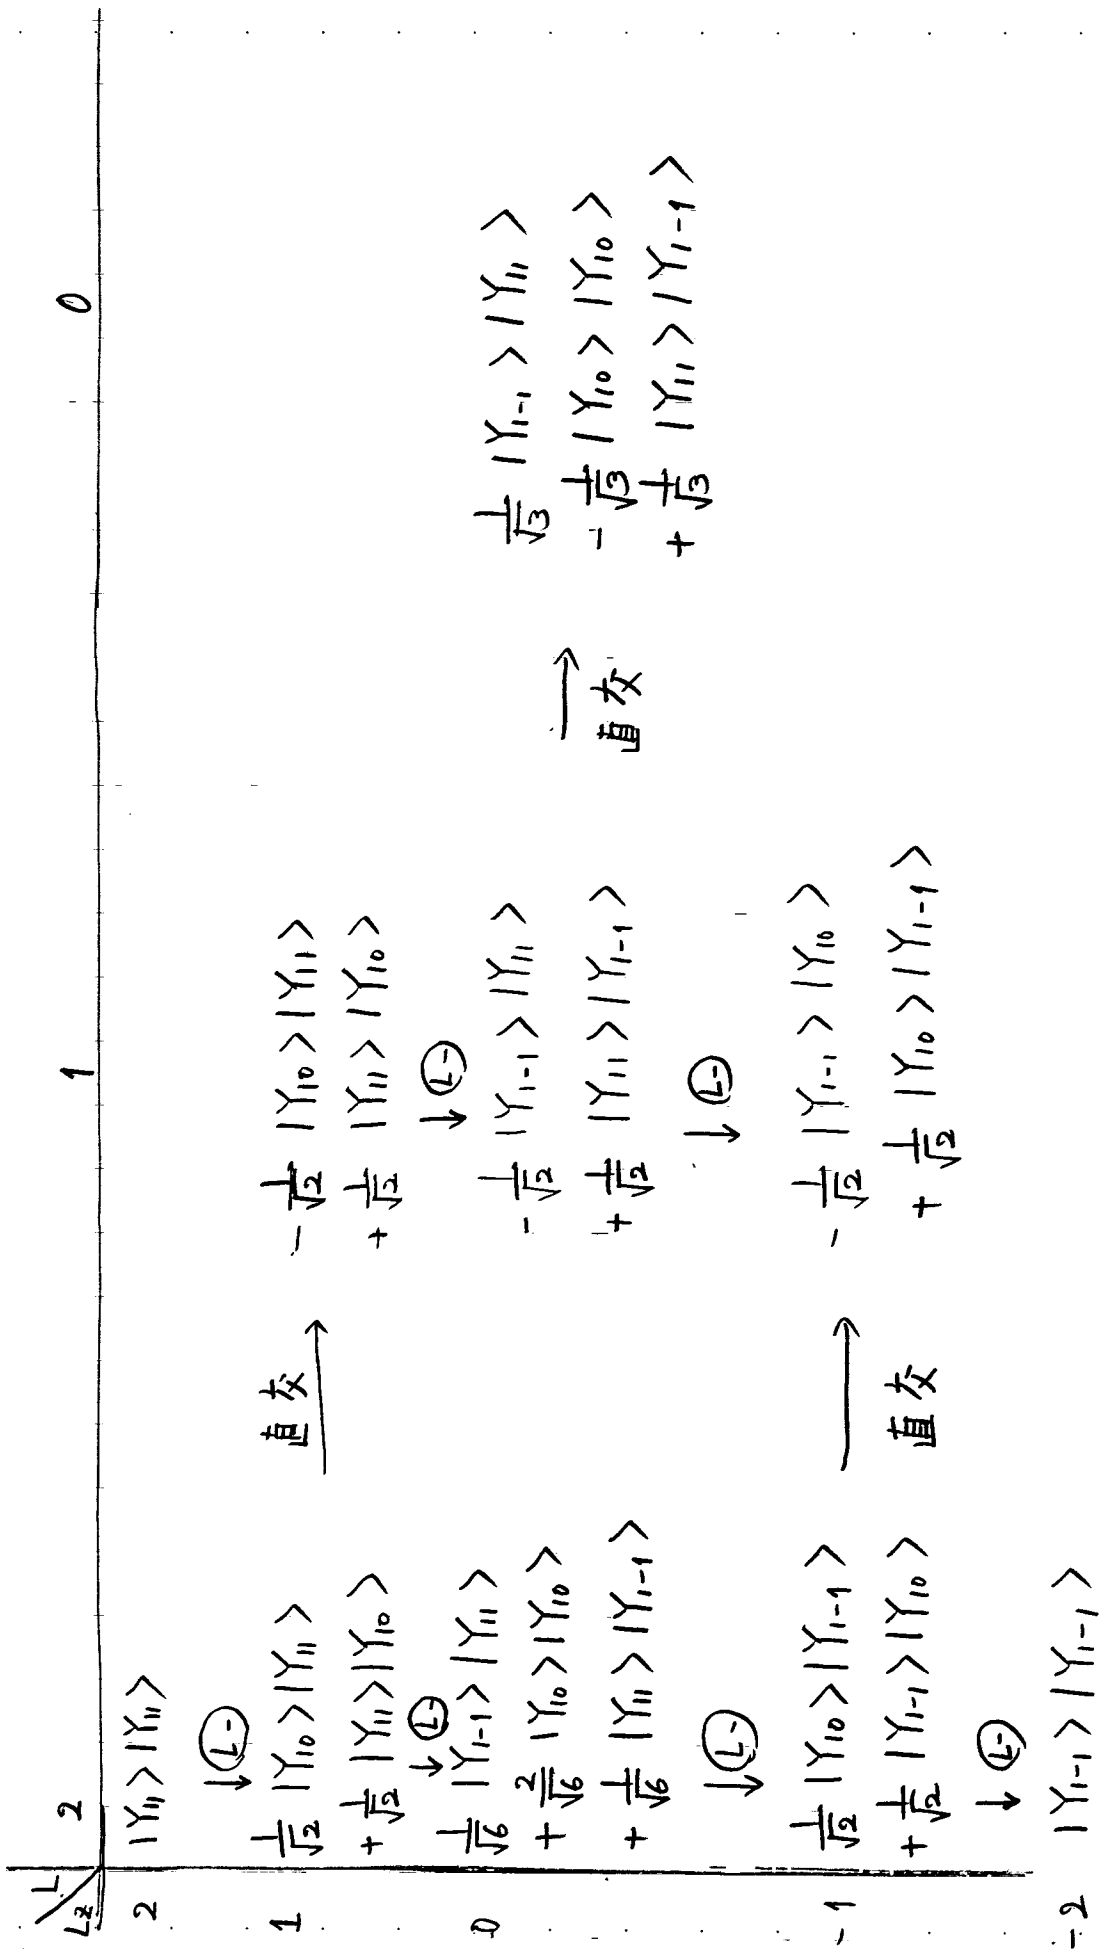 L
Lz
2 1 0
2
|Y₁₁>|Y₁₁>
↓ L-
1
1/√2 |Y₁₀>|Y₁₁>
+ 1/√2 |Y₁₁>|Y₁₀>
直交 →
- 1/√2 |Y₁₀>|Y₁₁>
+ 1/√2 |Y₁₁>|Y₁₀>
↓ L- ↓ L-
0
1/√6 |Y₁₋₁>|Y₁₁>
+ 2/√6 |Y₁₀>|Y₁₀>
+ 1/√6 |Y₁₁>|Y₁₋₁>
- 1/√2 |Y₁₋₁>|Y₁₁>
+ 1/√2 |Y₁₁>|Y₁₋₁>
→ 直交
1/√3 |Y₁₋₁>|Y₁₁>
- 1/√3 |Y₁₀>|Y₁₀>
+ 1/√3 |Y₁₁>|Y₁₋₁>
↓ L- ↓ L-
-1
1/√2 |Y₁₀>|Y₁₋₁>
+ 1/√2 |Y₁₋₁>|Y₁₀>
→ 直交
- 1/√2 |Y₁₋₁>|Y₁₀>
+ 1/√2 |Y₁₀>|Y₁₋₁>
↓ L-
-2
|Y₁₋₁>|Y₁₋₁>